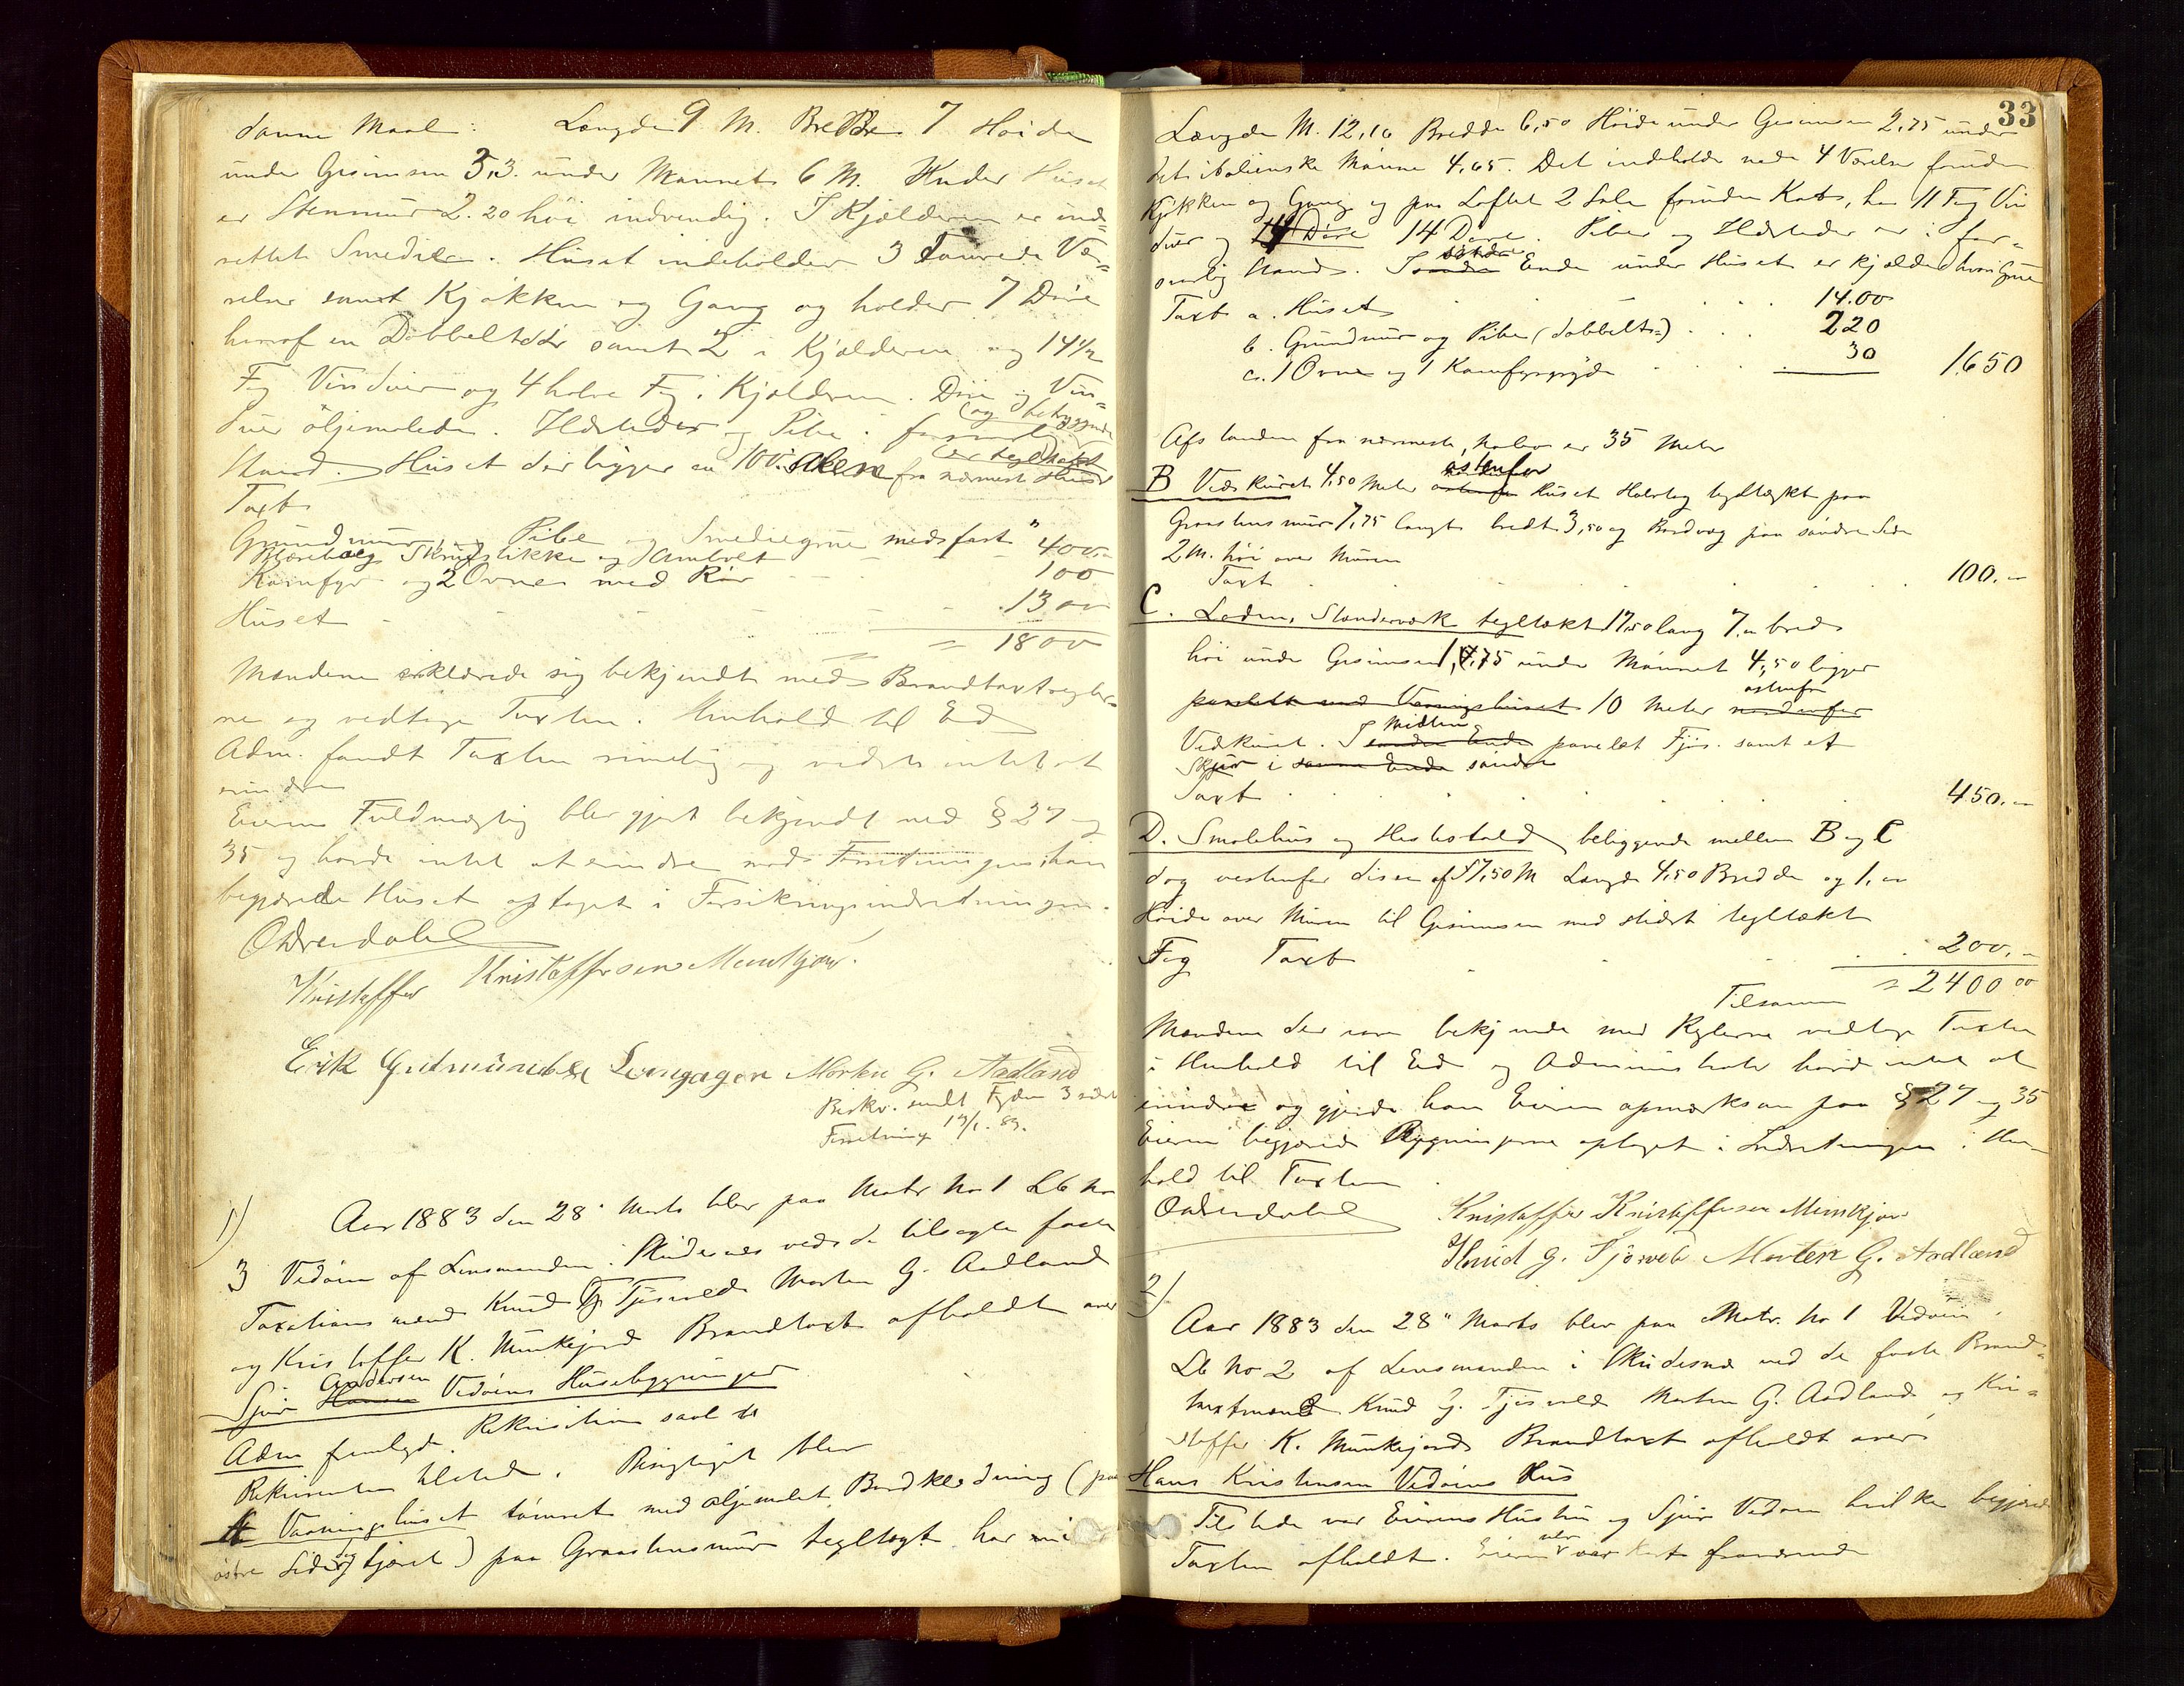 danne Maal: Længde 9 M. Bredde 7 Høide
under Gesimsen 5,3. under Mønnet 6 M. Under Huset
er Stenmur 2.20 höi indvendig. I Kjælderen er ind=
rettet Smedie. Huset indeholder 3 Værelser
samt Kjøkken og Gang og holder 7 Døre
heraf en Dobbeltdör samt 2 i Kjælderen og 14½
Fag Vinduer og 4 halve Fag i Kjælderen. Döre og Vin=
duer öljemalede. Ildsteder og Pibe i forsvarlig (og betryggende
Stand. Huset der ligger ca 100 Alen fra nærmeste Huse (er tegltækt)
Taxt
Grundmur og Pibe og Smediegrue med fast " 400.-
Blæsebælg Skrustikke og Ambolt
Komfyr og 2 Ovne med Rör 100
Huset 1300
= 1800
Mændene erklærede sig bekjendt med Brandtaxtregler=
ne og vedtoge Taxten i Henhold til Ed
Adm. fandt Taxten rimelig og vidste intet at
erindre
Eierens Fuldmægtig blev gjort bekjendt med § 27 og
35 og havde intet at erindre mod Forretningen, han
begjærede Huset optaget i Forsikringsindretningen.
O Drendahl
Kristoffer Kristoffersen Munkjor.
Erik Gudmundsen Longager Morten G. Aadland
Beskr. sendt 3
Forretning 17/1. 83.
1) Aar 1883 den 28' Marts blev paa Matr No 1 Lb No
3 Vedöen af Lensmanden i Skudenes ved de tilsagte faste
Taxationsmænd Knud G. Tjösvold Morten G. Aadland
og Kristoffer K. Munkejord Brandtaxt afholdt over
Sjur Hansen Andersen Vedöens Husebygninger
Adm fremlagde Rekvisition
Rekvirenten tilstede. Besigtiget blev
A Vaaningshuset tömret med oljemalet Bordklædning (paa
östre Side og tjæret) paa Graastensmur tegltægt har
33
Længde M. 12,10 Bredde 6,50 Höide under Gesimsen 2,75 under
det italienske Mönne 4,65. Det indeholder nede 4 Værelser foruden
Kjökken og Gang og paa Loftet 2 Sale foruden Kots, har 11 Fag Vin
duer og 14 Döre 14 Döre. Piber og Ildsteder er i for=
svarlig Stand. I söndre söndre Ende under Huset er kjælder hvori Grue
Taxt a. Huset 1400
b. Grundmur og Pibe (dobbelt) 220
c. 1 Ovn og 1 Komfyrgryde 30 1650
Afstanden fra nærmeste, naboer er 35 Meter
B Vedskuret 4,50 Meter östenfor östenfor Huset Halvtag tegltækt paa
Graastensmur 7,75 langt bredt 3,50 og Bordvæg paa söndre Side
2 M. höi over Muren
Taxt 100.-
C. Laden, Stænderværk tegltækt 17,50 lang 7,- bred
höi under Gesimsen 1,75 under Mönnet 4,50 ligger
parallelt med Vaaningshuset 10 Meter nordenfor östenfor
Vedskuret. I söndre Ende Midten panelet Fjös. samt et
Skjur i samme Ende söndre
Taxt 450.-
D. Smalehus og Hestestald beliggende mellem B og C
dog vestenfor disse af 17,50 M Længde 4,50 Bredde og 1,-
Höide over Muren til Gesimsen med tegltækt
Tag Taxt 200.-
Tilsammen = 2400 00
Mændene der vare bekjendte med Reglerne vedtoge Taxten
i Henhold til Ed og Administrator havde intet at
erindre og gjorde han Eieren opmærksom paa § 27 og 35
Eieren begjærede Bygningerne optaget i Indretningen i Hen=
hold til Taxten
O Drendahl Kristoffer Kristoffersen Munkjor
Knud G. Tjösvold Morten G. Aadland
2)
Aar 1883 den 28" Marts blev paa Matr. No 1 Vedöen
Lb No 2 af Lensmanden i Skudesnæs ved de faste Brand=
taxtmænd Knud G. Tjösvold Morten G. Aadland og Kri=
stoffer K. Munkejord Brandtaxt afholdt over
Hans Kristensen Vedöens Hus
Tilstede var Eierens Hustru og Sjur Vedöen hvilke begjærede
Taxten afholdt. Eieren selv var fraværende